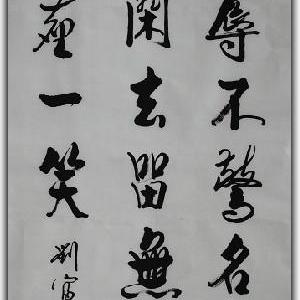 辱不驚名
閑去留無
一笑
劉